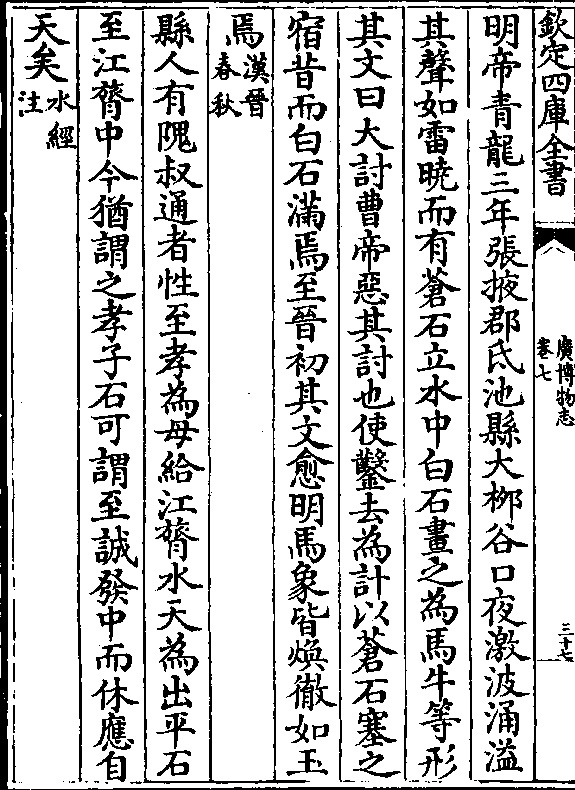 欽定四庫全書
廣博物志
卷七
三十七
明帝青龍三年張掖郡氐池縣大栁谷口夜激波涌溢
其聲如雷曉而有蒼石立水中白石畫之為馬牛等形
其文曰大討曹帝惡其討也使鑿去為計以蒼石塞之
宿昔而白石滿焉至晉初其文愈明馬象皆煥徹如玉
焉漢晉春秋
縣人有隗叔通者性至孝為母給江膂水天為出平石
至江膂中今猶謂之孝子石可謂至誠發中而休應自
天矣水經注